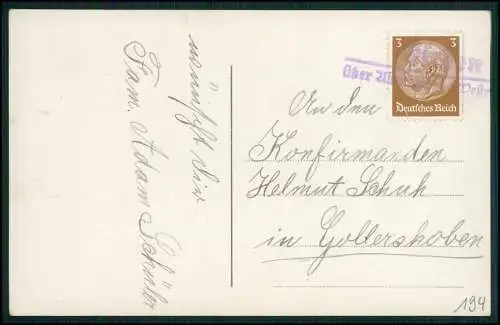 wünscht dir
Fam. Adam Schüler
3
3
Deutsches Reich
über
An den
Konfirmanden
Helmut Schuh
in Gollershoben
194